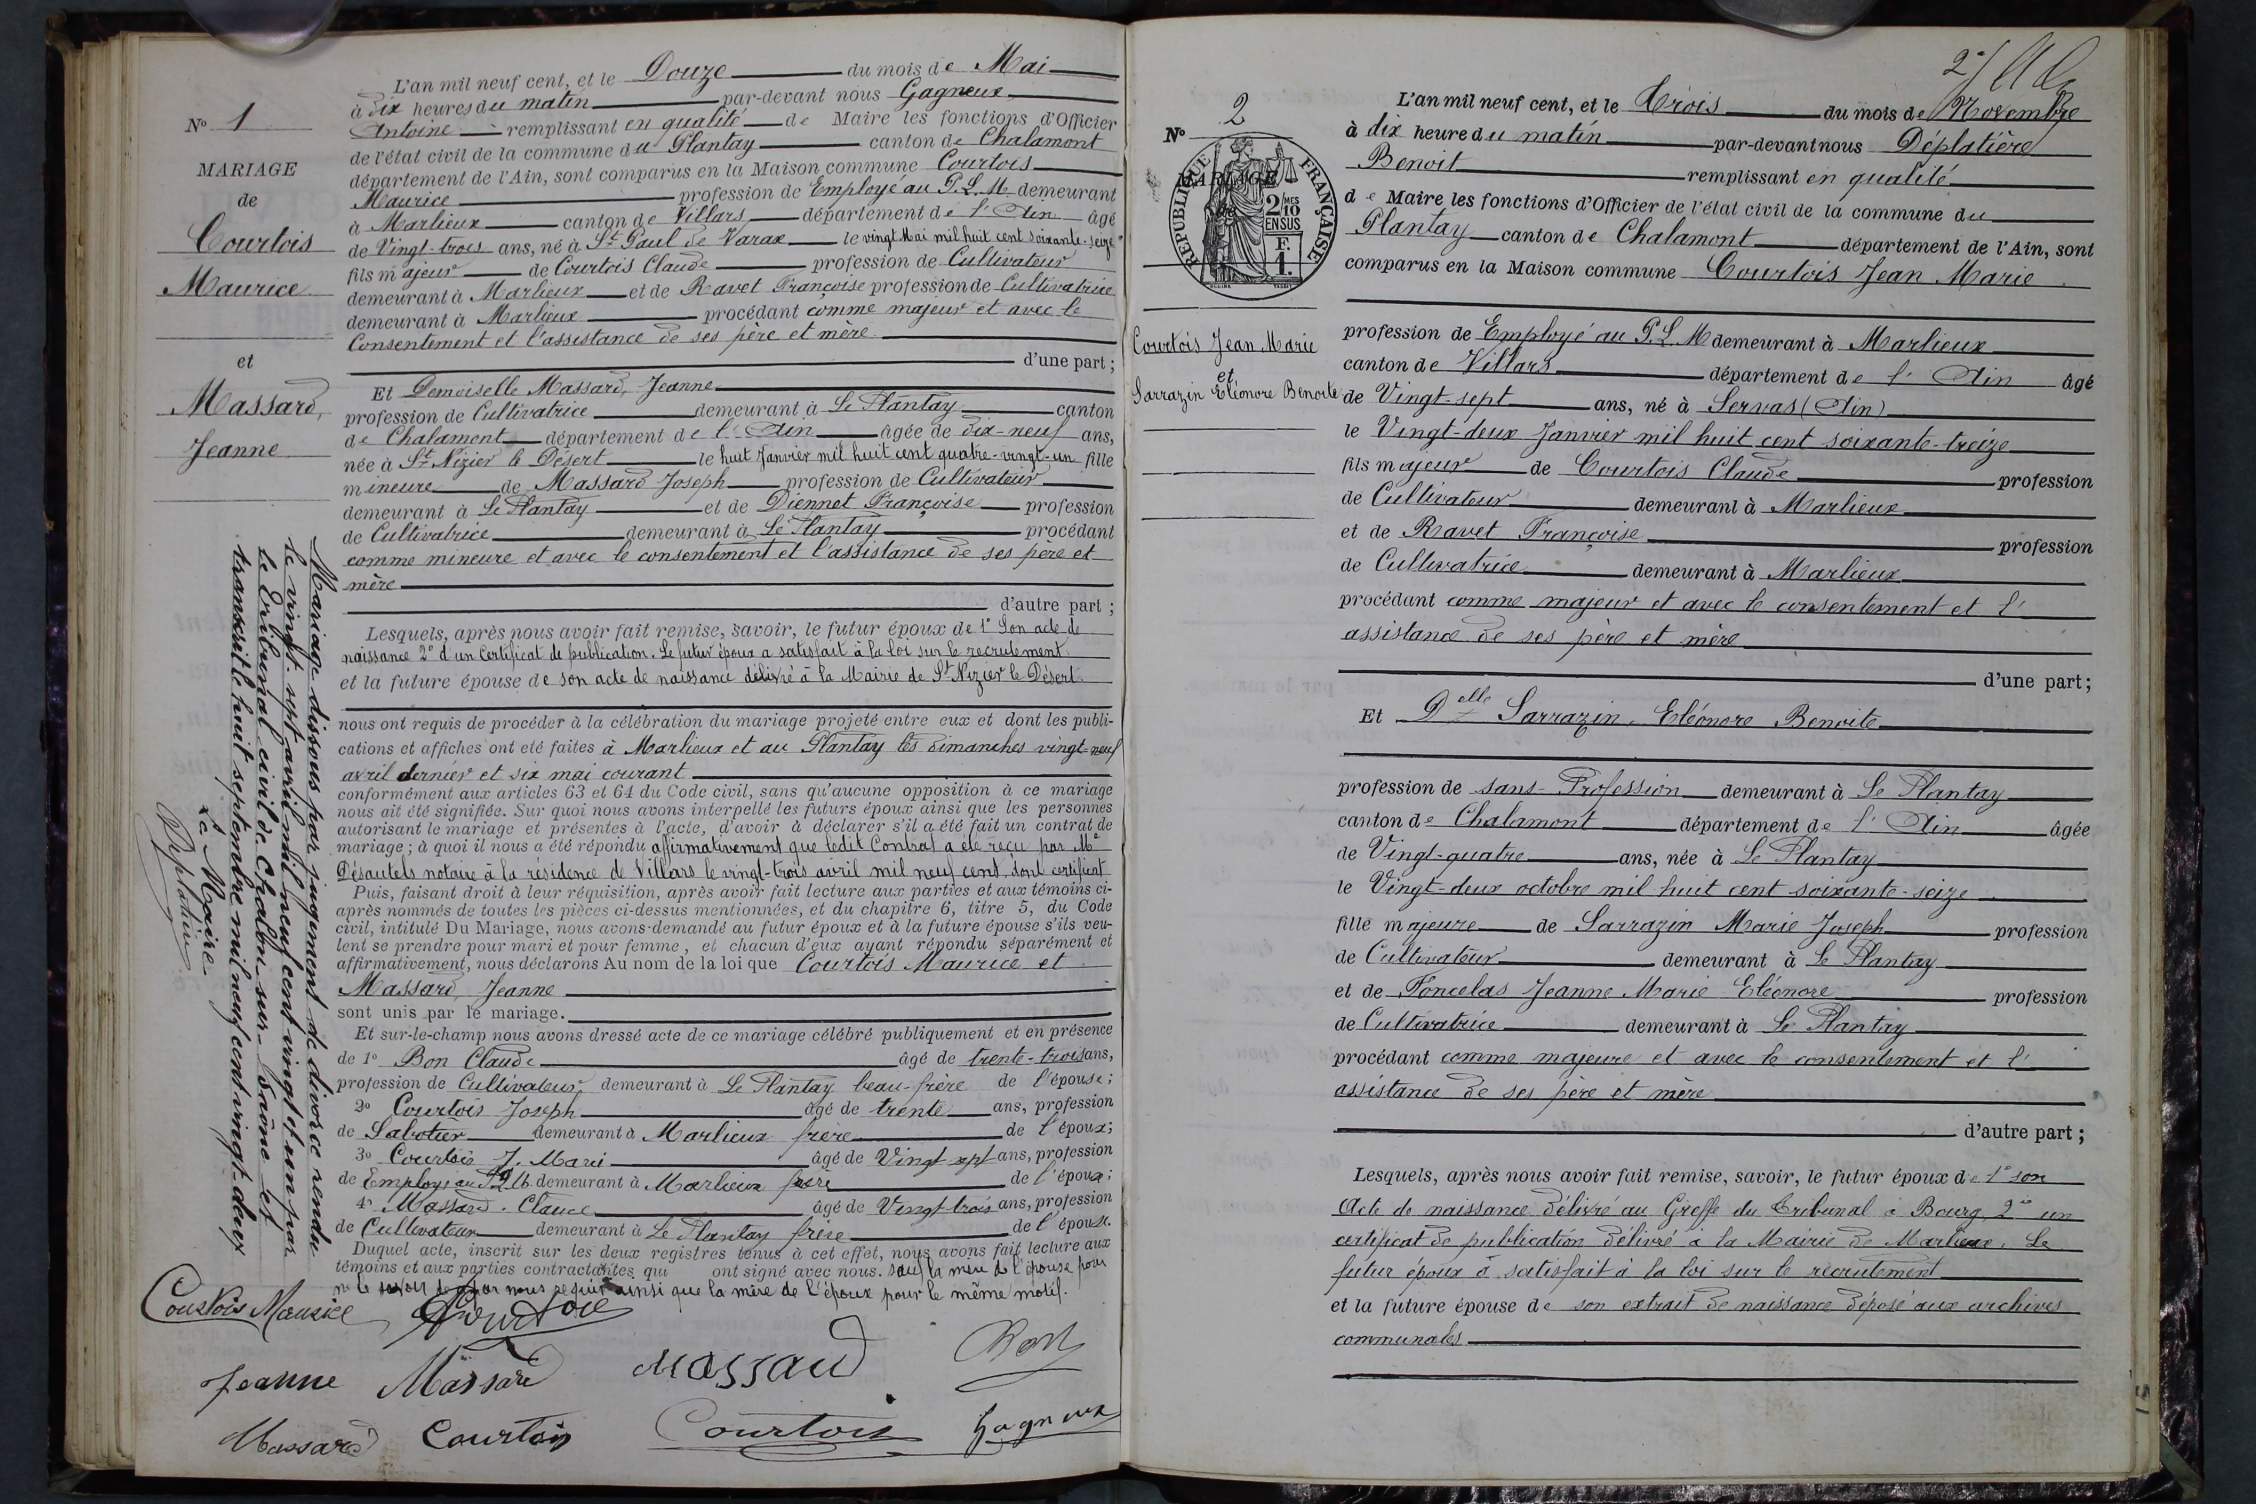 N° 1
MARIAGE
de
Courtois
Maurice
et
Massard,
Jeanne
L'an mil neuf cent, et le Douze du mois de Mai
à dix heures du matin par-devant nous Gagneux
Antoine remplissant en qualité de Maire les fonctions d'Officier
de l'état civil de la commune du Plantay canton de Chalamont
département de l'Ain, sont comparus en la Maison commune Courtois
Maurice profession de Employé au P. L. M demeurant
à Marlieux canton de Villars département de l'Ain âgé
de Vingt-trois ans, né à St Paul de Varax le vingt Mai mil huit cent soixante-seize
fils majeur de Courtois Claude profession de Cultivateur
demeurant à Marlieux et de Ravet Françoise profession de Cultivatrice
demeurant à Marlieux procédant comme majeur et avec le
Consentement et l'assistance de ses père et mère.
d'une part ;
Et Demoiselle Massard, Jeanne
profession de Cultivatrice demeurant à Le Plantay canton
de Chalamont département de l'Ain âgée de dix-neuf ans,
née à St Nizier le Désert le huit Janvier mil huit cent quatre-vingt-un fille
mineure de Massard Joseph profession de Cultivateur
demeurant à Le Plantay et de Diennet Françoise profession
de Cultivatrice demeurant à Le Plantay procédant
comme mineure et avec le consentement et l'assistance de ses père et
mère
d'autre part ;
Lesquels, après nous avoir fait remise, savoir, le futur époux de 1° Son acte de
naissance 2° d'un Certificat de publication. Le futur époux a satisfait à la loi sur le recrutement
et la future épouse de son acte de naissance délivré à la Mairie de St Nizier le Désert
nous ont requis de procéder à la célébration du mariage projeté entre eux et dont les publi-
cations et affiches ont été faites à Marlieux et au Plantay les dimanches vingt-neuf
avril dernier et six mai courant
conformément aux articles 63 et 64 du Code civil, sans qu'aucune opposition à ce mariage
nous ait été signifiée. Sur quoi nous avons interpellé les futurs époux ainsi que les personnes
autorisant le mariage et présentes à l'acte, d'avoir à déclarer s'il a été fait un contrat de
mariage ; à quoi il nous a été répondu affirmativement que ledit Contrat a été reçu par Me
Désautels notaire à la résidence de Villars le vingt-trois avril mil neuf cent, dont certificat
Puis, faisant droit à leur réquisition, après avoir fait lecture aux parties et aux témoins ci-
après nommés de toutes les pièces ci-dessus mentionnées, et du chapitre 6, titre 5, du Code
civil, intitulé Du Mariage, nous avons demandé au futur époux et à la future épouse s'ils veu-
lent se prendre pour mari et pour femme, et chacun d'eux ayant répondu séparément et
affirmativement, nous déclarons Au nom de la loi que Courtois Maurice et
Massard, Jeanne
sont unis par le mariage.
Et sur-le-champ nous avons dressé acte de ce mariage célébré publiquement et en présence
de 1° Bon Claude âgé de trente-trois ans,
profession de Cultivateur demeurant à Le Plantay beau-frère de l'épouse ;
2° Courtois Joseph âgé de trente ans, profession
de Sabotier demeurant à Marlieux frère de l'époux ;
3° Courtois J. Marie âgé de Vingt sept ans, profession
de Employé au P L M demeurant à Marlieux frère de l'époux ;
4° Massard Claude âgé de Vingt-trois ans, profession
de Cultivateur demeurant à Le Plantay frère de l'épouse.
Duquel acte, inscrit sur les deux registres tenus à cet effet, nous avons fait lecture aux
témoins et aux parties contractantes qui ont signé avec nous. sauf la mère de l'épouse pour
ne le savoir de par nous requise ainsi que la mère de l'époux pour le même motif.
Courtois Maurice Courtois
Jeanne Massard Massard Bon
Massard Courtois Courtois Gagneux
Mariage dissous par jugement de divorce rendu
le vingt-sept avril mil neuf cent vingt et un par
le tribunal civil de Chalon-sur-Saône et
transcrit le huit septembre mil neuf cent vingt-deux
Le Maire
Déplatière
N° 2
MARIAGE
de
RÉPUBLIQUE FRANÇAISE
2/10 MES
EN SUS
F.
1.
Courtois Jean Marie
et
Sarrazin Eléonore Benoite
L'an mil neuf cent, et le Trois du mois de Novembre
à dix heure du matin par-devant nous Déplatière
Benoit remplissant en qualité
de Maire les fonctions d'Officier de l'état civil de la commune du
Plantay canton de Chalamont département de l'Ain, sont
comparus en la Maison commune Courtois Jean Marie
profession de Employé au P. L. M demeurant à Marlieux
canton de Villars département de l'Ain âgé
de Vingt-sept ans, né à Servas (Ain)
le Vingt-deux Janvier mil huit cent soixante-treize
fils majeur de Courtois Claude profession
de Cultivateur demeurant à Marlieux
et de Ravet Françoise profession
de Cultivatrice demeurant à Marlieux
procédant comme majeur et avec le consentement et l'
assistance de ses père et mère
d'une part ;
Et Delle Sarrazin Eléonore Benoite
profession de sans Profession demeurant à Le Plantay
canton de Chalamont département de l'Ain âgée
de Vingt-quatre ans, née à Le Plantay
le Vingt-deux octobre mil huit cent soixante-seize
fille majeure de Sarrazin Marie Joseph profession
de Cultivateur demeurant à Le Plantay
et de Foncelas Jeanne Marie Eléonore profession
de Cultivatrice demeurant à Le Plantay
procédant comme majeure et avec le consentement et l'
assistance de ses père et mère
d'autre part ;
Lesquels, après nous avoir fait remise, savoir, le futur époux de 1° son
Acte de naissance délivré au Greffe du Tribunal à Bourg, 2° un
certificat de publication délivré à la Mairie de Marlieux. Le
futur époux a satisfait à la loi sur le recrutement
et la future épouse de son extrait de naissance déposé aux archives
communales